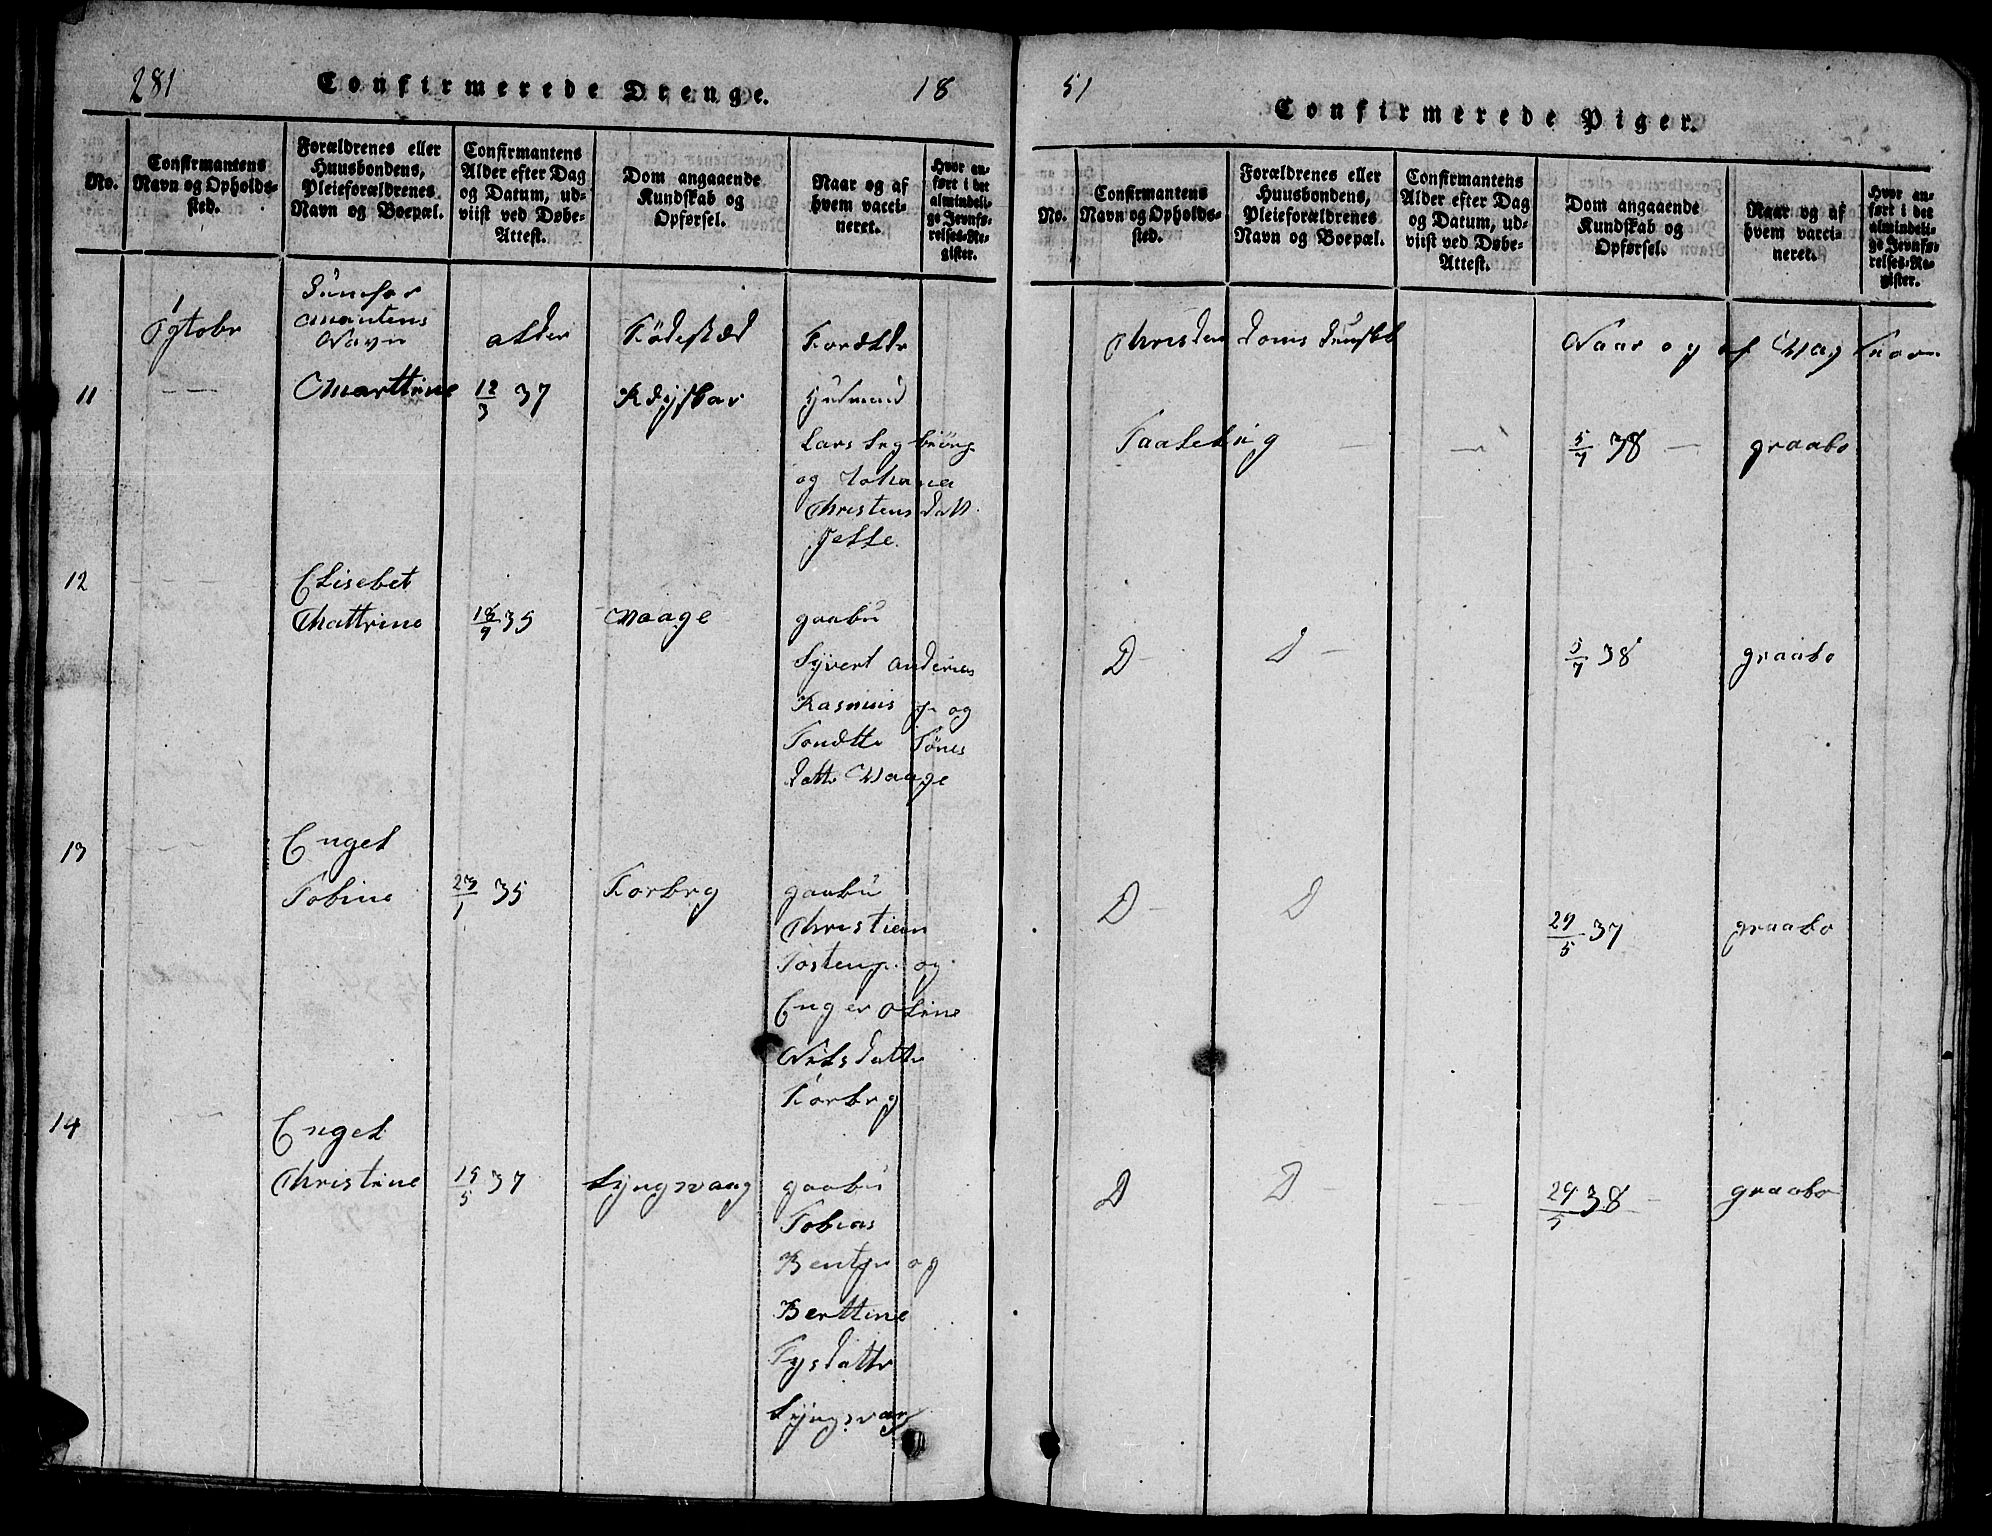 281
Confirmerede Drenge.
18
No.
Confirmantens
Navn og Opholds-
sted.
Forældrenes eller
Huusbondens,
Pleieforældrenes
Navn og Boepæl.
Confirmantens
Alder efter Dag
og Datum, ud-
viist ved Døbe-
Attest.
Dom angaaende
Kundskab og
Opførsel.
Naar og af
hvem vacci-
neret.
Hvor an-
ført i det
almindeli-
ge Jevnfø-
relses-Re-
gister.
Navn
alder
Födestæd
Foreldr
11
Marttine
12/3 37
Husmand
Lars
og Johana
Christens datt
12
Elisebet
Thattrine
18/9 35
Waage
gaabu
Syvert anders
Rasmus og
datte Waage
13
Engel
Tobine
23/1 35
Torbrg
gaabu
Christien
og
Enger oline
Nilsdatte
Torbrg
14
Engel
Christine
15/5 37
Lyngvaag
gaabu
Tobias
Bentsn og
Berttine
datte
Lyngvag
51
Confirmerede Piger.
No.
Confirmantens
Navn og Opholds-
sted.
Forældrenes eller
Huusbondens,
Pleieforældrenes
Navn og Boepæl.
Confirmantens
Alder efter Dag
og Datum, ud-
viist ved Døbe-
Attest.
Dom angaaende
Kundskab og
Opførsel.
Naar og af
hvem vacci-
neret.
Hvor an-
ført i det
almindeli-
ge Jevnfø-
relses-Re-
gister.
Christen doms
Naar og af
Taalelig — — 5/7 38 — graabo
D — D — 5/7 38 graabo
D — D 29/5 37 graabo
D D — — 29/5 38 — graabo